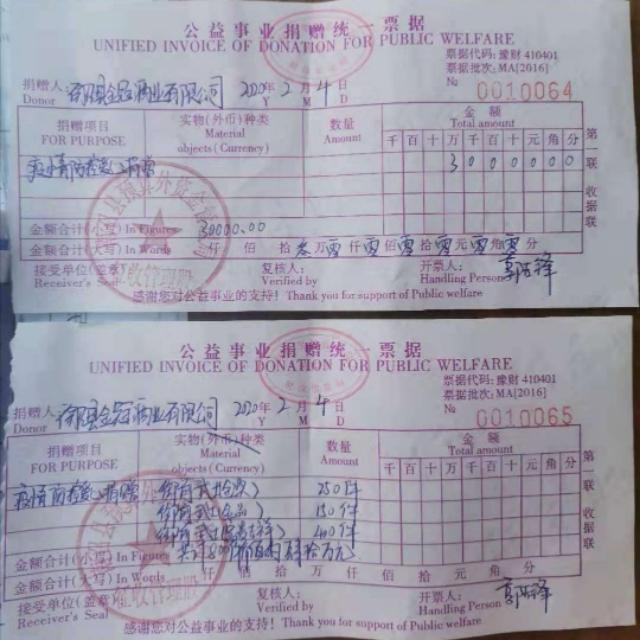 公益事业捐赠统一票据
UNIFIED INVOICE OF DONATION FOR PUBLIC WELFARE
票据代码: 豫财 410401
票据批次: MA[2016]
捐赠人: 有限公司 2020年2月4日
Donor Y M D
№ 0010064
捐赠项目 实物(外币)种类 数量 金额
FOR PURPOSE Material objects (Currency) Amount Total amount
千百十万千百十元角分
疫情防控 捐赠 3000000
金额合计(小写) In Figures 30000.00
金额合计(大写) In Words 仟 佰 拾 叁万零仟零佰零拾零元零角零分
接受单位(盖章) 复核人: 开票人:
Receiver's Seal Verified by Handling Person
感谢您对公益事业的支持! Thank you for support of Public welfare
第一联 收据联
公益事业捐赠统一票据
UNIFIED INVOICE OF DONATION FOR PUBLIC WELFARE
票据代码: 豫财 410401
票据批次: MA[2016]
捐赠人: 有限公司 2020年2月4日
Donor Y M D
№ 0010065
捐赠项目 实物(外币)种类 数量 金额
FOR PURPOSE Material objects (Currency) Amount Total amount
千百十万千百十元角分
疫情防控 捐赠 250件
150件
400件
金额合计(小写) In Figures
金额合计(大写) In Words 仟 佰 拾 万 仟 佰 拾 元 角 分
接受单位(盖章) 复核人: 开票人:
Receiver's Seal Verified by Handling Person
感谢您对公益事业的支持! Thank you for support of Public welfare
第一联 收据联